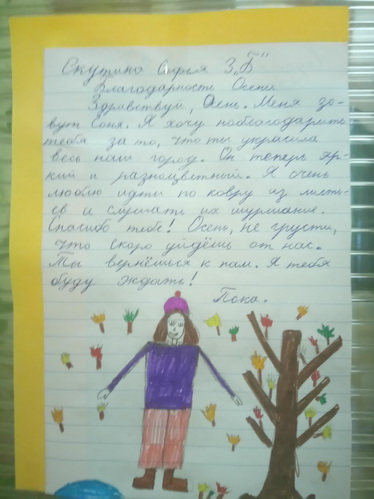 Скупина Софья 3 „Б"
Благодарность Осени
Здравствуй, Осень. Меня зо-
вут Соня. Я хочу поблагодарить
тебя за то, что ты украсила
весь наш город. Он теперь яр-
кий и разноцветный. Я очень
люблю идти по ковру из листь-
ев и слушать их шуршание.
Спасибо тебе! Осень, не грусти,
что скоро уйдёшь от нас.
Ты вернёшься к нам. Я тебя
буду ждать!
Пока.